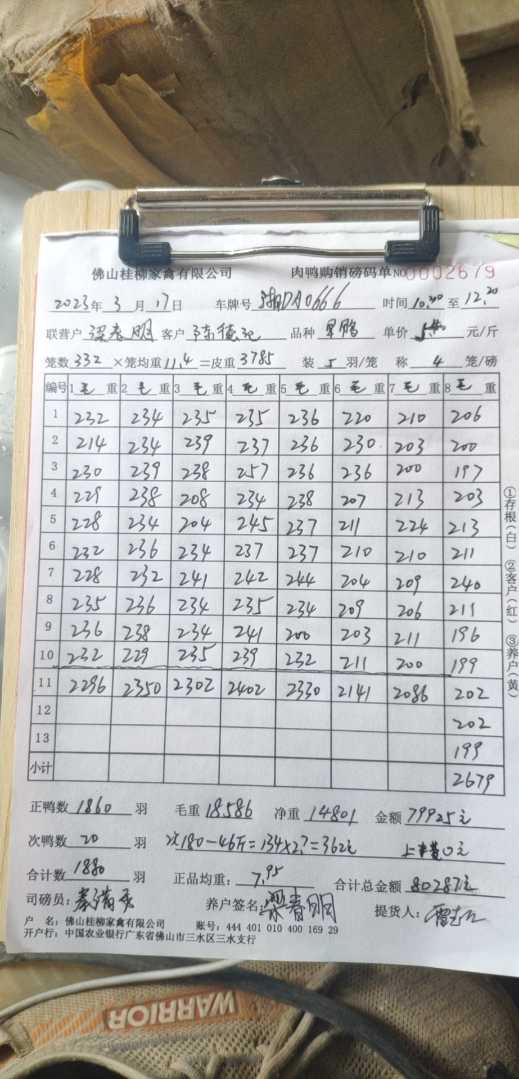 佛山桂柳家禽有限公司 肉鸭购销磅码单 NO 0002679
2023年 3 月 17 日 车牌号 湘DA0666 时间 10.30 至 12.20
联营户 梁春明 客户 陈德记 品种 单价 元/斤
笼数 332 ×笼均重 11.4 =皮重 3785 装 5 羽/笼 称 4 笼/磅
编号 1 毛 重 2 毛 重 3 毛 重 4 毛 重 5 毛 重 6 毛 重 7 毛 重 8 毛 重
1 232 234 235 235 236 220 210 206
2 214 234 239 237 236 230 203 200
3 230 239 238 257 236 236 200 197
4 229 238 208 234 238 207 213 203
5 228 234 204 245 237 211 224 213
6 232 236 234 237 237 210 210 211
7 228 232 241 242 244 204 209 240
8 235 236 234 235 234 209 206 211
9 236 238 234 241 200 203 211 196
10 232 229 235 239 232 211 200 199
11 2296 2350 2302 2402 2330 2141 2086 202
12 202
13 199
小计 2679
正鸭数 1860 羽 毛重 18586 净重 14801 金额 79925元
次鸭数 20 羽 次180-46斤=134×2.7=362元
合计数 1880 羽 正品均重: 7.95 合计总金额 80287元
司磅员: 养户签名: 梁春明 提货人:
户 名: 佛山桂柳家禽有限公司 账号: 444 401 010 400 169 29
开户行: 中国农业银行广东省佛山市三水区三水支行
①存根(白) ②客户(红) ③养户(黄)
WARRIOR